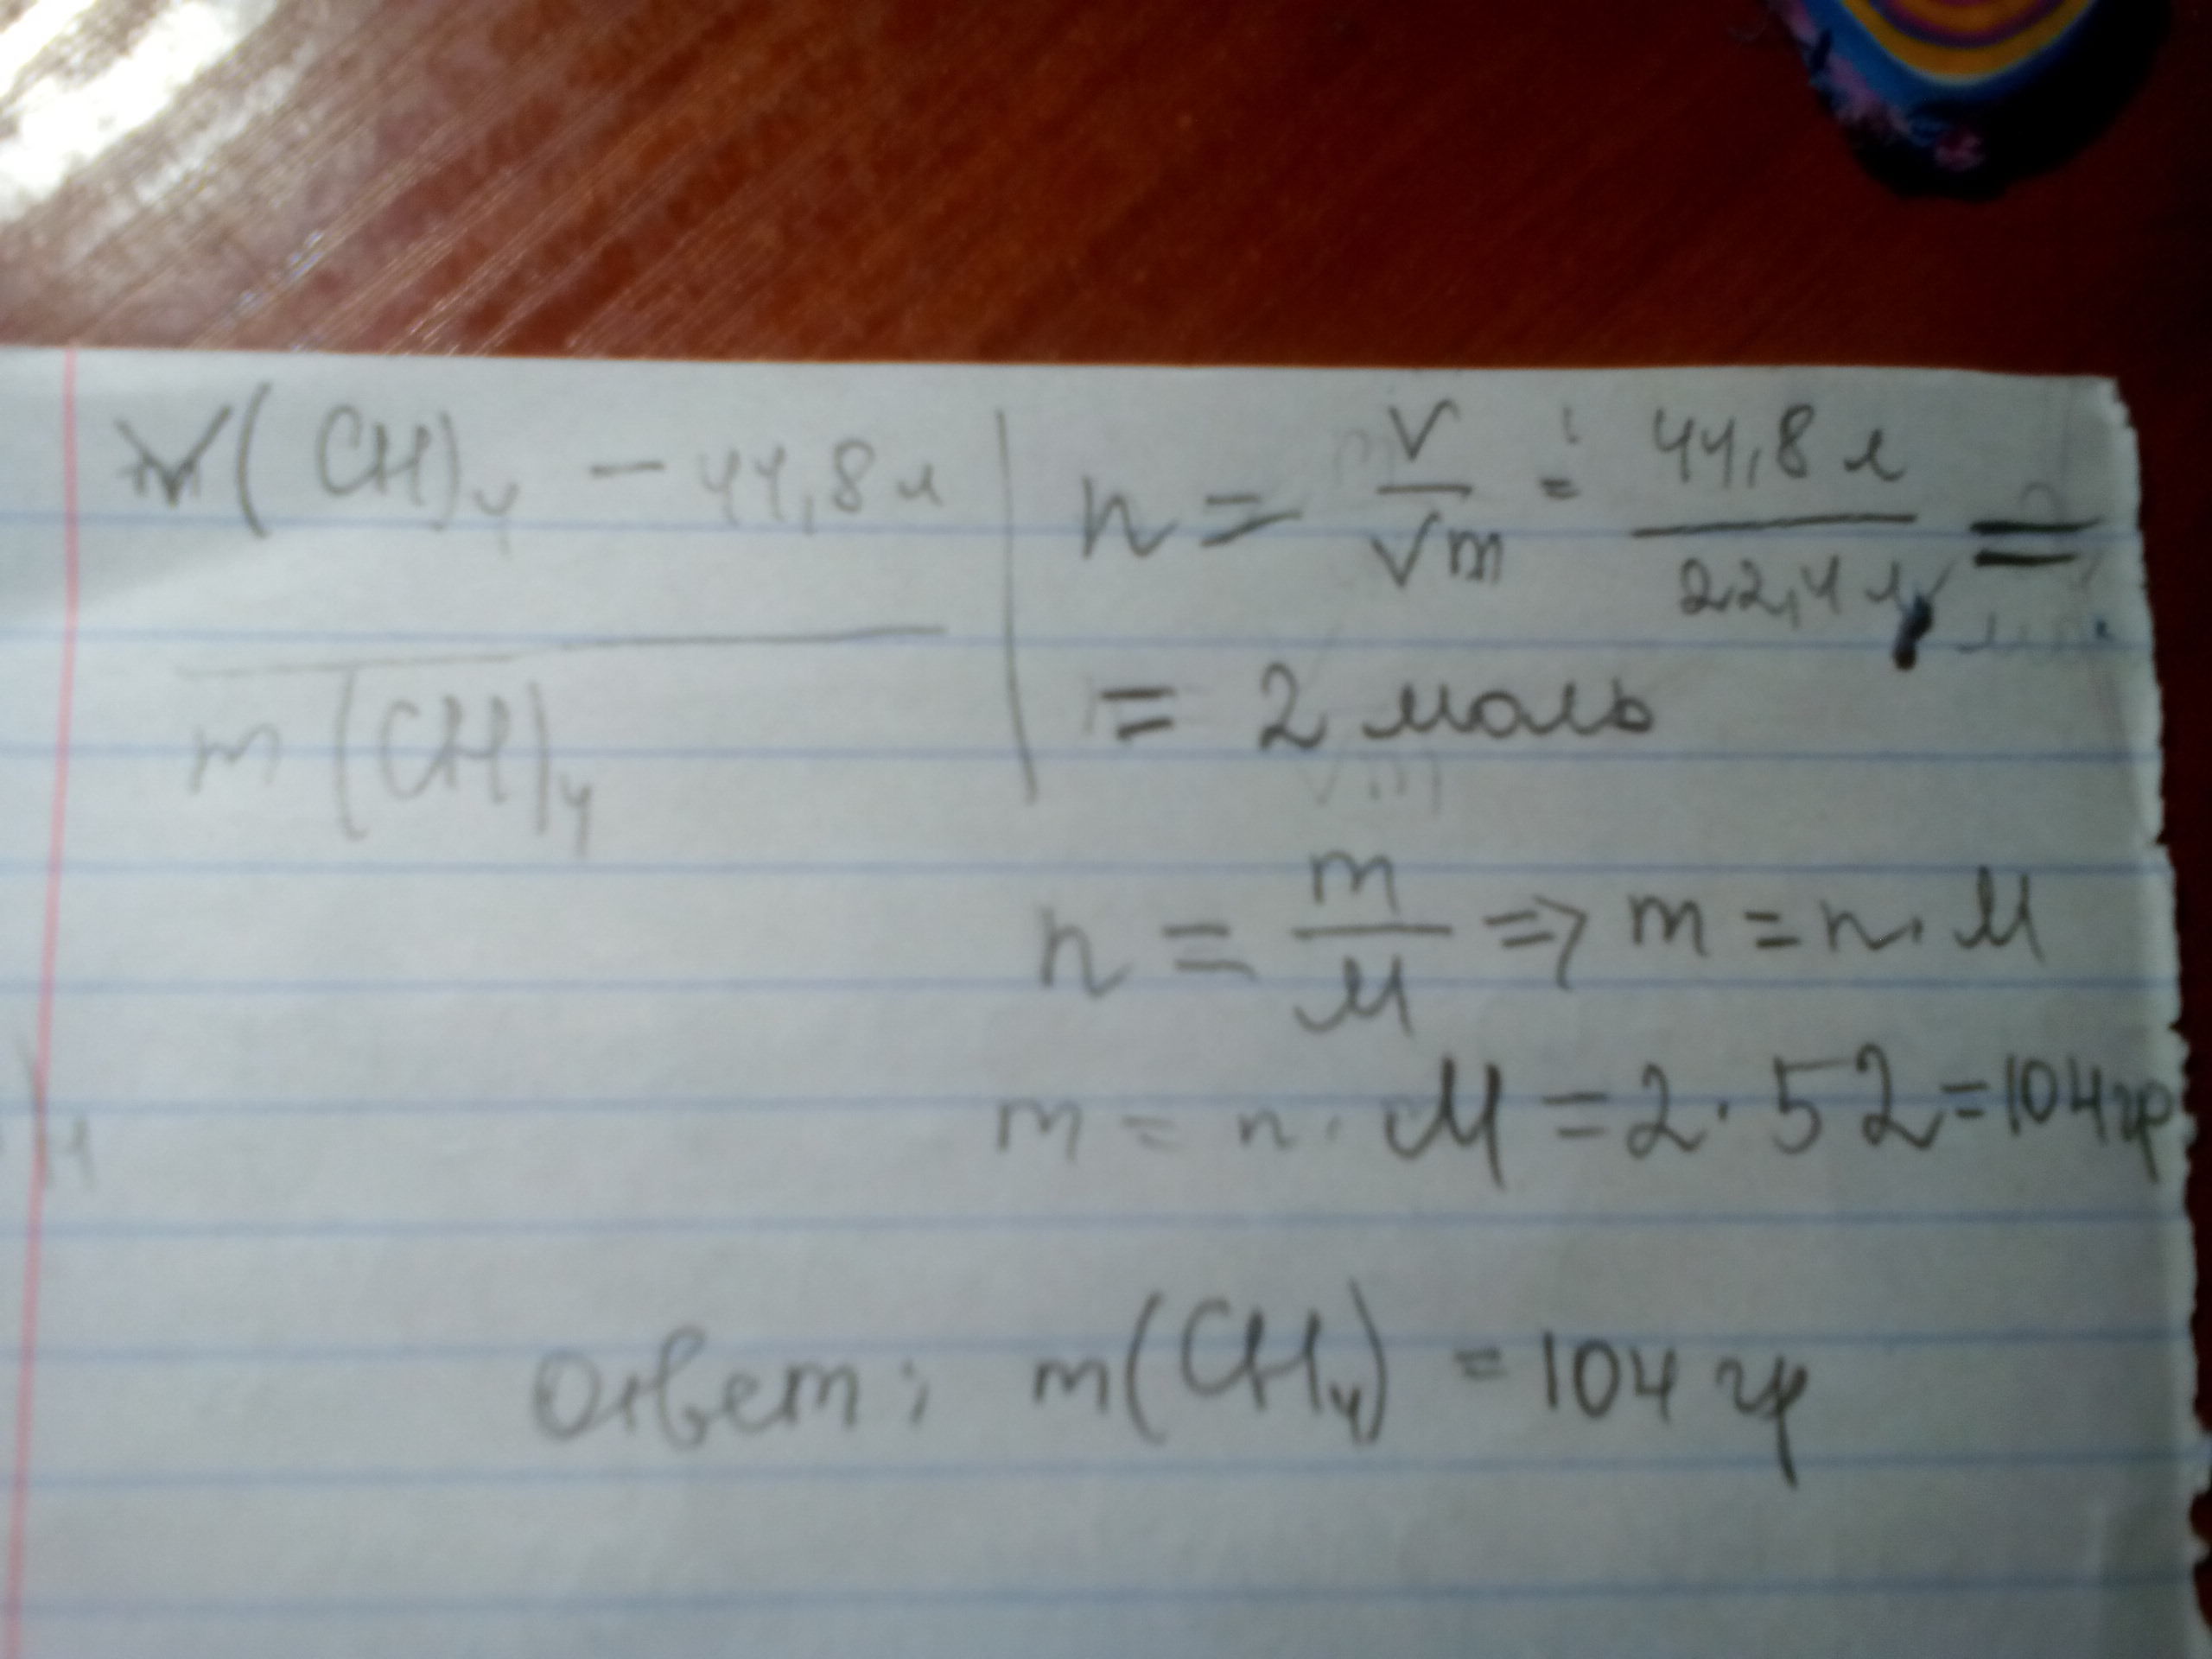 V(CH)₄ — 44,8 л
m(CH)₄
n = V/Vm = 44,8 л/22,4 л =
= 2 моль
n = m/M => m = n · M
m = n · M = 2 · 52 = 104 гр
Ответ: m(CH₄) = 104 гр